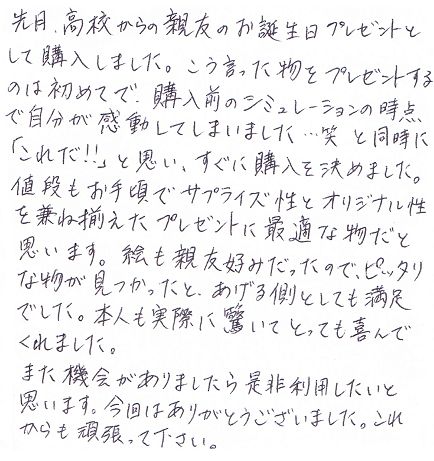 先月、高校からの親友のお誕生日プレゼントと
して購入しました。こう言った物をプレゼントする
のは初めてで、購入前のシミュレーションの時点
で自分が感動してしまいました…笑 と同時に
「これだ!!」と思い、すぐに購入を決めました。
値段もお手頃でサプライズ性とオリジナル性
を兼ね揃えたプレゼントに最適な物だと
思います。絵も親友好みだったので、ピッタリ
な物が見つかったと、あげる側としても満足
でした。本人も実際に驚いてとっても喜んで
くれました。
また機会がありましたら是非利用したいと
思います。今回はありがとうございました。これ
からも頑張って下さい。